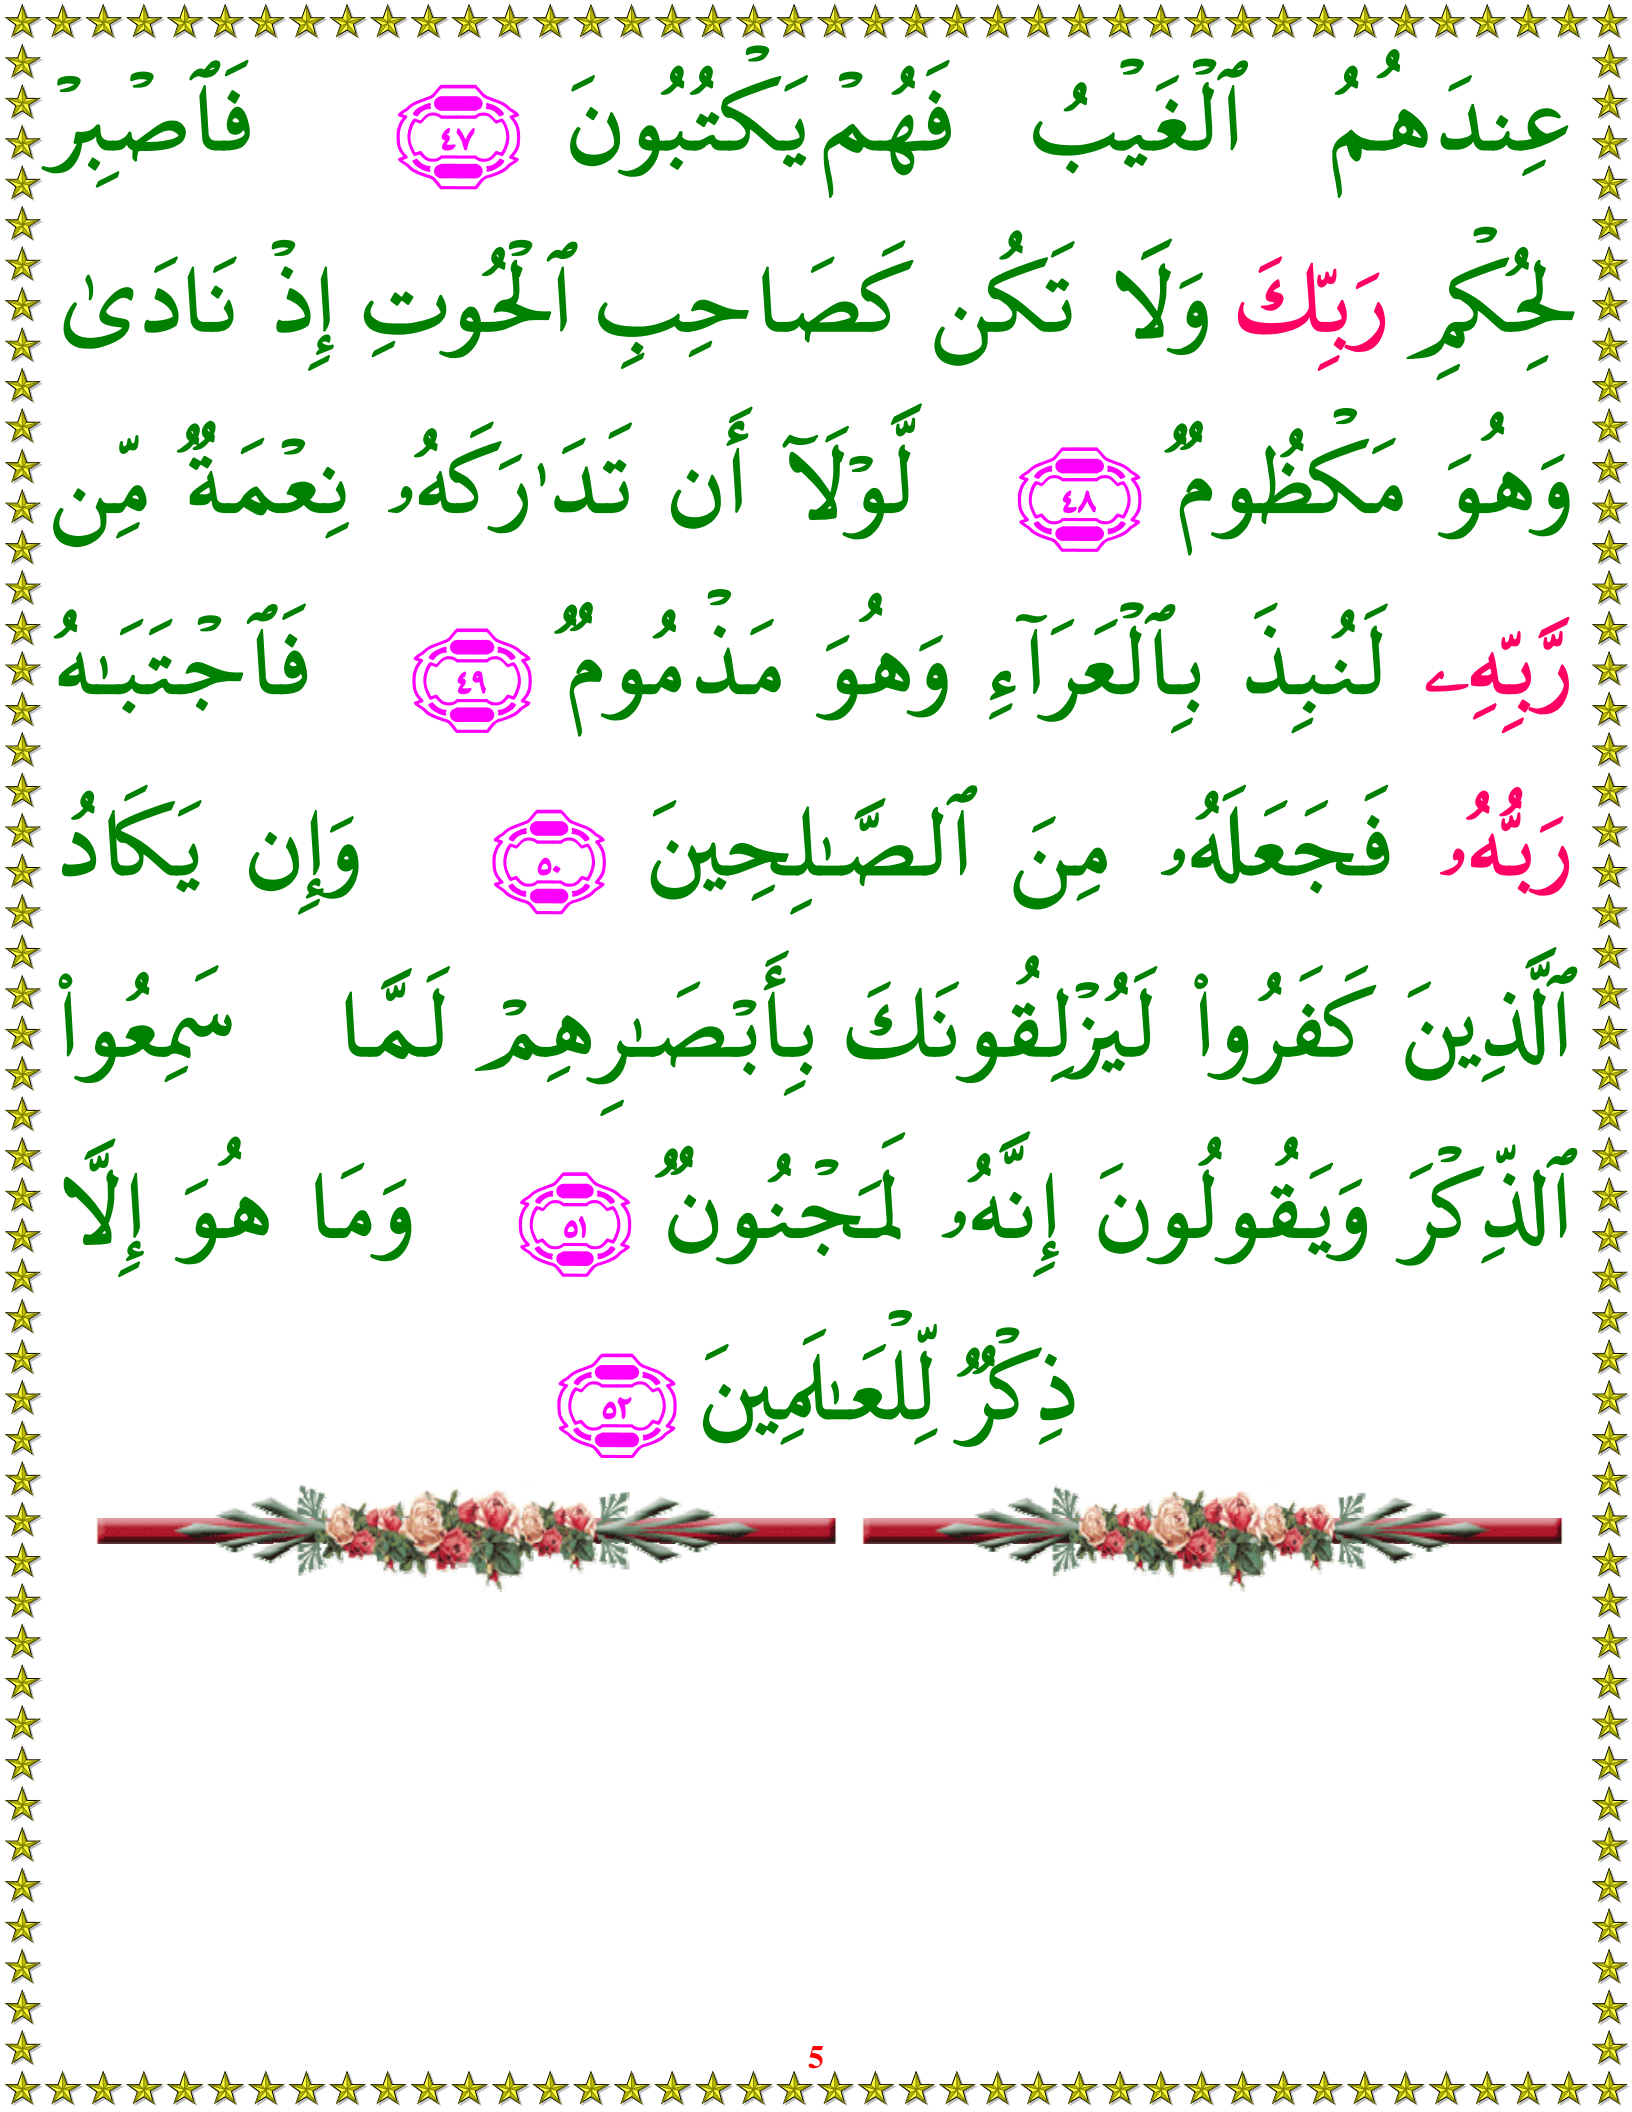 عِندَهُمُ ٱلْغَيْبُ فَهُمْ يَكْتُبُونَ ٤٧ فَٱصْبِرْ
لِحُكْمِ رَبِّكَ وَلَا تَكُن كَصَاحِبِ ٱلْحُوتِ إِذْ نَادَىٰ
وَهُوَ مَكْظُومٌ ٤٨ لَّوْلَآ أَن تَدَٰرَكَهُۥ نِعْمَةٌ مِّن
رَّبِّهِۦ لَنُبِذَ بِٱلْعَرَآءِ وَهُوَ مَذْمُومٌ ٤٩ فَٱجْتَبَـٰهُ
رَبُّهُۥ فَجَعَلَهُۥ مِنَ ٱلصَّـٰلِحِينَ ٥٠ وَإِن يَكَادُ
ٱلَّذِينَ كَفَرُوا۟ لَيُزْلِقُونَكَ بِأَبْصَـٰرِهِمْ لَمَّا سَمِعُوا۟
ٱلذِّكْرَ وَيَقُولُونَ إِنَّهُۥ لَمَجْنُونٌ ٥١ وَمَا هُوَ إِلَّا
ذِكْرٌ لِّلْعَـٰلَمِينَ ٥٢
5